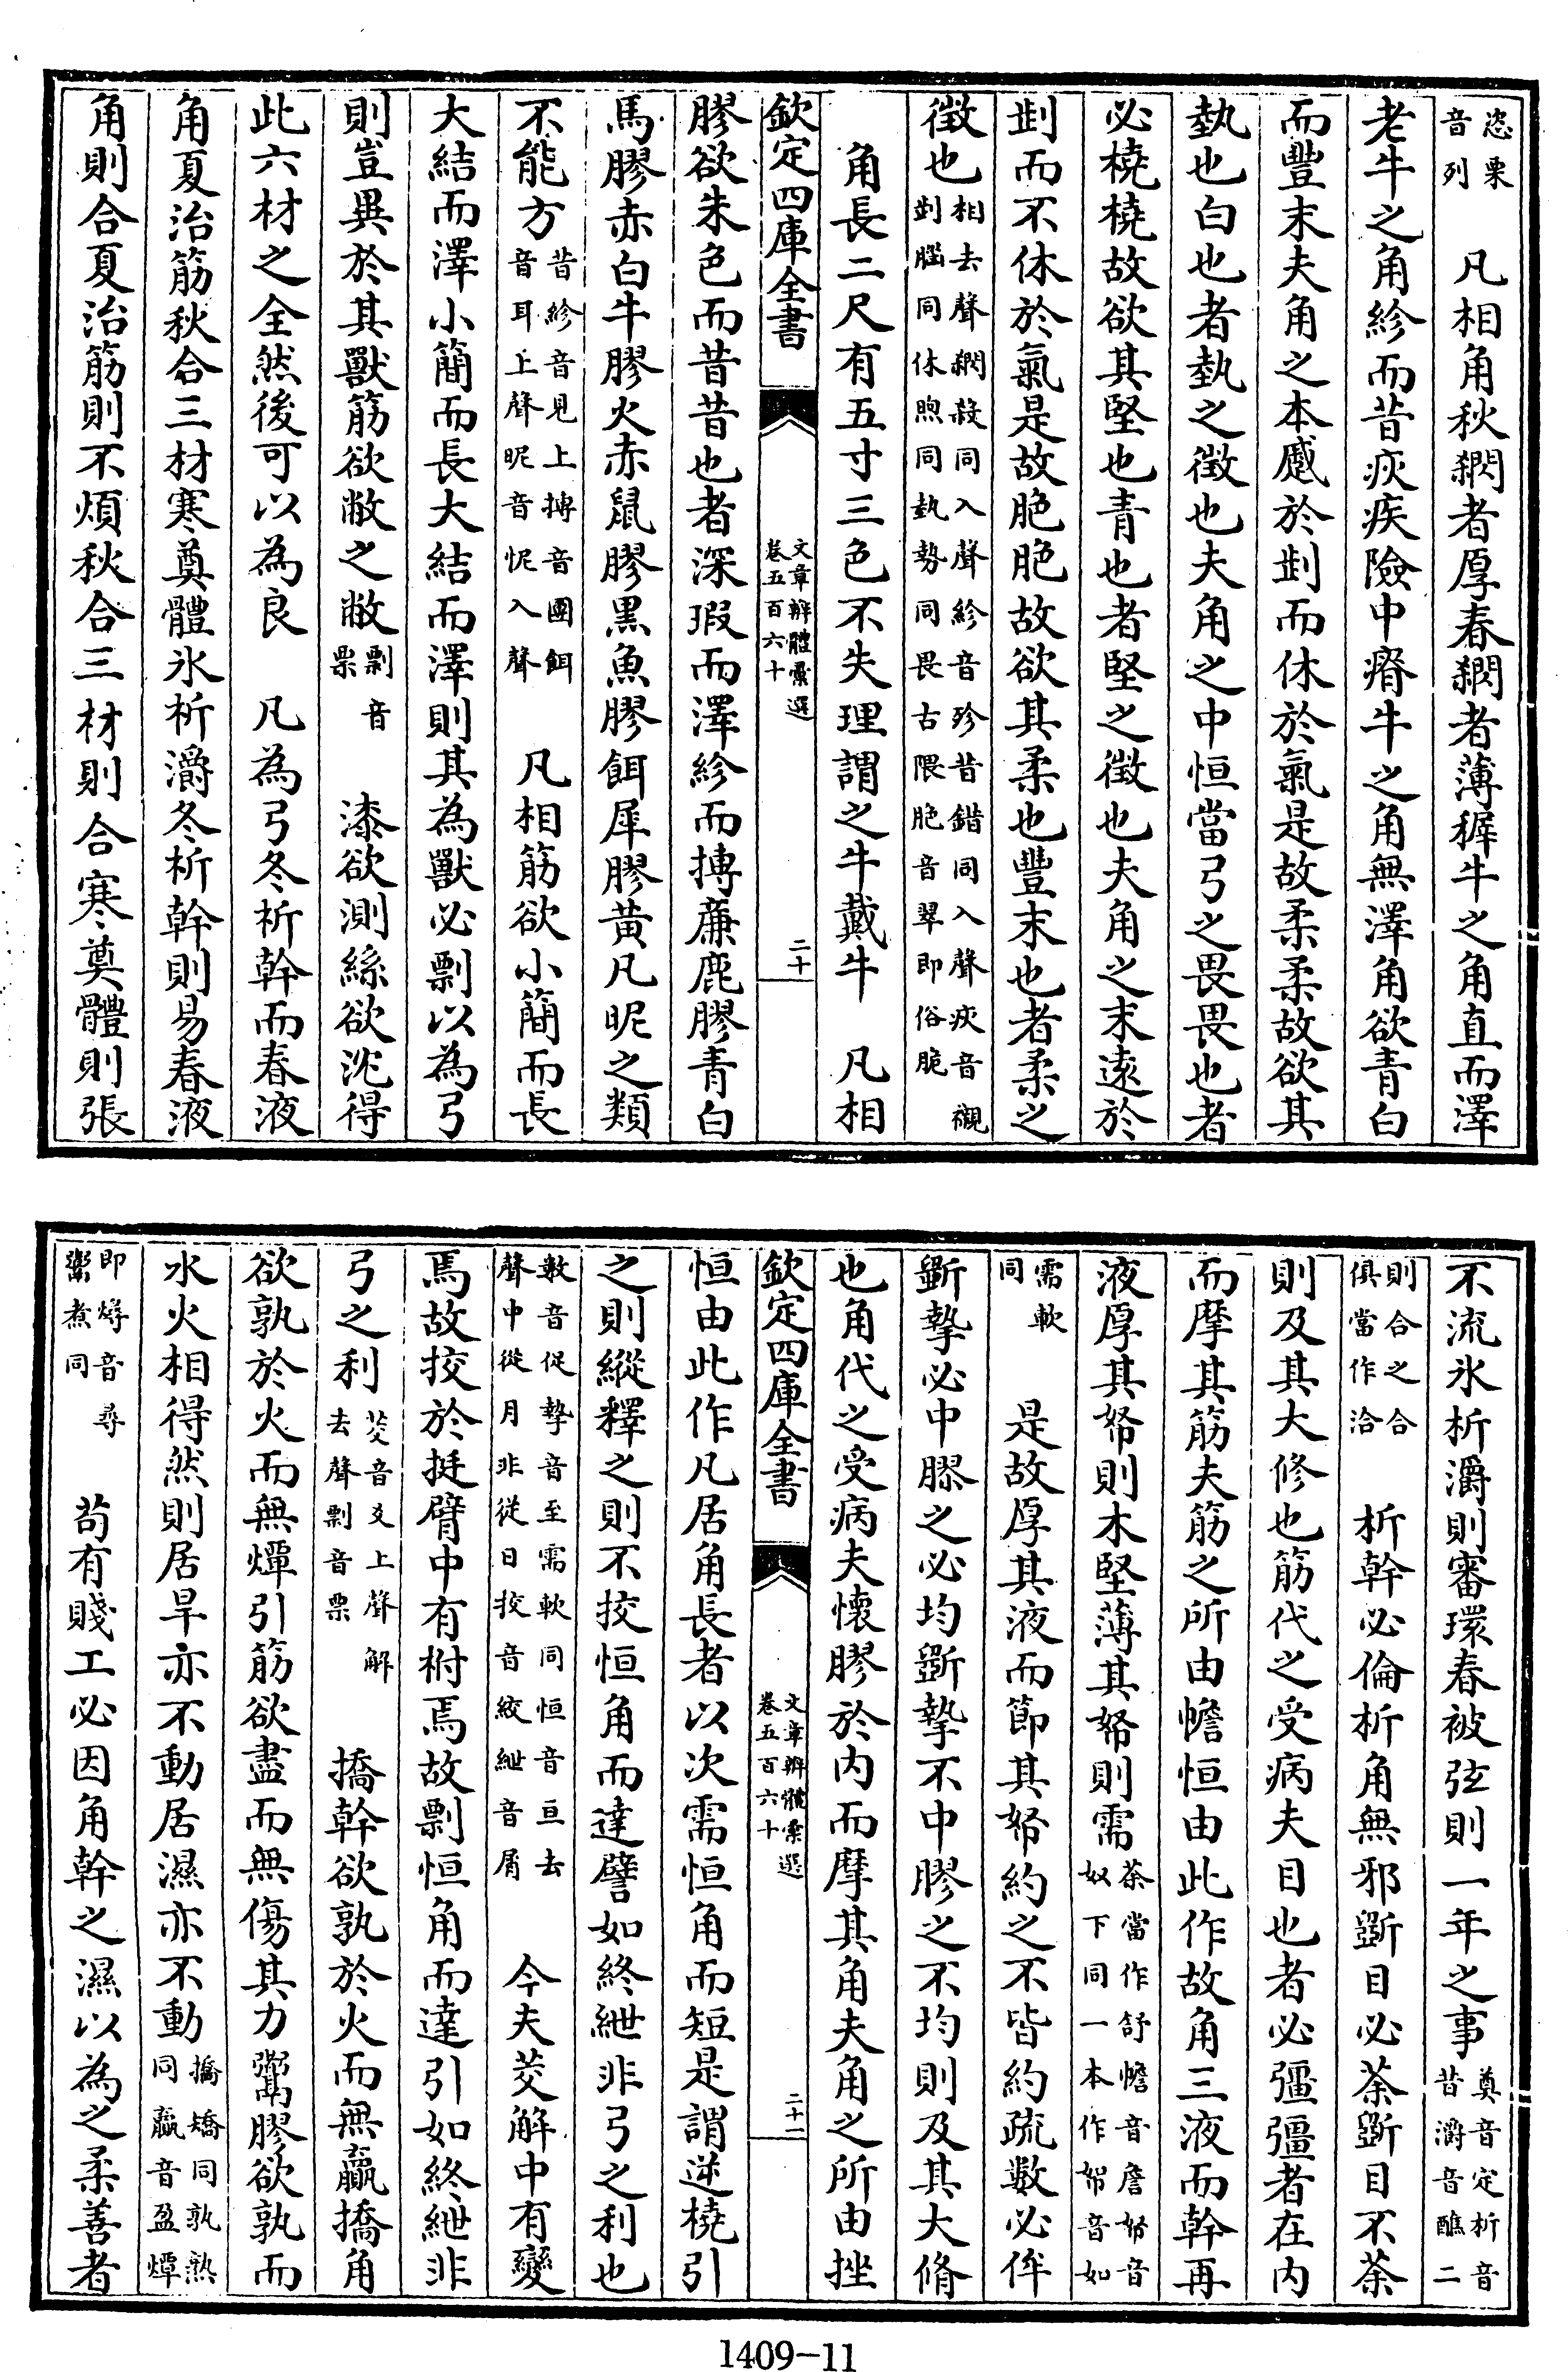 恣栗音列　凡相角秋閷者厚春閷者薄稺牛之角直而澤
老牛之角紾而昔疢疾險中瘠牛之角無澤角欲青白
而豐末夫角之本蹙於𠜾而休於氣是故柔柔故欲其
埶也白也者埶之徵也夫角之中恒當弓之畏畏也者
必橈橈故欲其堅也青也者堅之徵也夫角之末遠於
𠜾而不休於氣是故脃脃故欲其柔也豐末也者柔之
徵也相去聲閷殺同入聲紾音珍昔錯同入聲疢音襯𠜾腦同休煦同埶勢同畏古隈脃音翠即俗脆
角長二尺有五寸三色不失理謂之牛戴牛　凡相
欽定四庫全書　文章辨體彙選卷五百六十　二十
膠欲朱色而昔昔也者深瑕而澤紾而摶廉鹿膠青白
馬膠赤白牛膠火赤鼠膠黑魚膠餌犀膠黃凡昵之類
不能方昔紾音見上摶音團餌音耳上聲昵音怩入聲　凡相筋欲小簡而長
大結而澤小簡而長大結而澤則其為獸必剽以為弓
則豈異於其獸筋欲敝之敝剽音票　漆欲測絲欲沈得
此六材之全然後可以為良　凡為弓冬析幹而春液
角夏治筋秋合三材寒奠體氷析灂冬析幹則易春液
角則合夏治筋則不煩秋合三材則合寒奠體則張
不流氷析灂則審環春被弦則一年之事奠音定析音昔灂音醮二
則合之合俱當作洽　析幹必倫析角無邪斵目必荼斵目不荼
則及其大修也筋代之受病夫目也者必彊彊者在内
而摩其筋夫筋之所由幨恒由此作故角三液而幹再
液厚其帤則木堅薄其帤則需荼當作舒幨音詹帤音奴下同一本作帤音如
需軟同　是故厚其液而節其帤約之不皆約疏數必侔
斵摯必中膠之必均斵摯不中膠之不均則及其大脩
也角代之受病夫懷膠於内而摩其角夫角之所由挫
欽定四庫全書　文章辨體彙選卷五百六十　二十一
恒由此作凡居角長者以次需恒角而短是謂逆橈引
之則縱釋之則不挍恒角而達譬如終紲非弓之利也
數音促摯音至需軟同恒音亘去聲中從月非從日挍音絞紲音屑　今夫茭解中有變
焉故挍於挺臂中有柎焉故剽恒角而達引如終紲非
弓之利茭音爻上聲解去聲剽音票　撟幹欲孰於火而無贏撟角
欲孰於火而無燂引筋欲盡而無傷其力鬻膠欲孰而
水火相得然則居旱亦不動居濕亦不動撟矯同孰熟同贏音盈燂
即燖音尋鬻煮同　苟有賤工必因角幹之濕以為之柔善者
1409-11